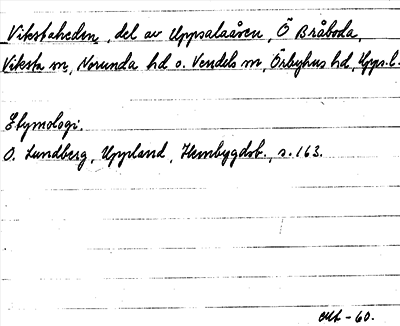 Vikstaheden, del av Uppsalaåsen, Ö Bråboda,
Viksta sn, Norunda hd o. Vendels sn, Örbyhus hd, Upps. l.
Etymologi.
O. Lundberg, Uppland, Hembygdsb., s. 163.
-60.